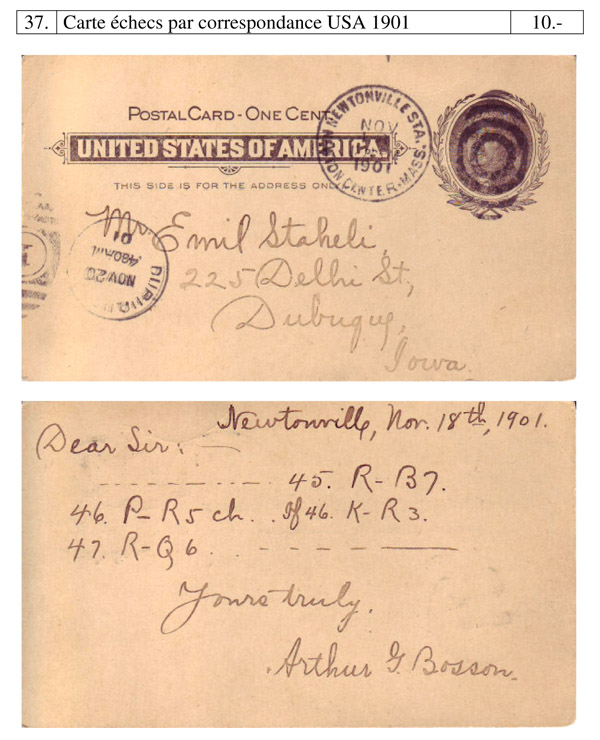 37. Carte échecs par correspondance USA 1901 10.-
POSTAL CARD - ONE CENT.
UNITED STATES OF AMERICA.
THIS SIDE IS FOR THE ADDRESS ONLY.
NEWTONVILLE STA.
NOV
1901
CENTER-MASS.
Mr. Emil Staheli,
225 Delhi St,
Dubuque,
Iowa.
NOV 20
4 30 AM
01
Newtonville, Nov. 18th, 1901.
Dear Sir:-
45. R-B7.
46. P-R5 ch. . If 46. K-R3.
47. R-Q6
Yours truly,
Arthur G. Bosson.